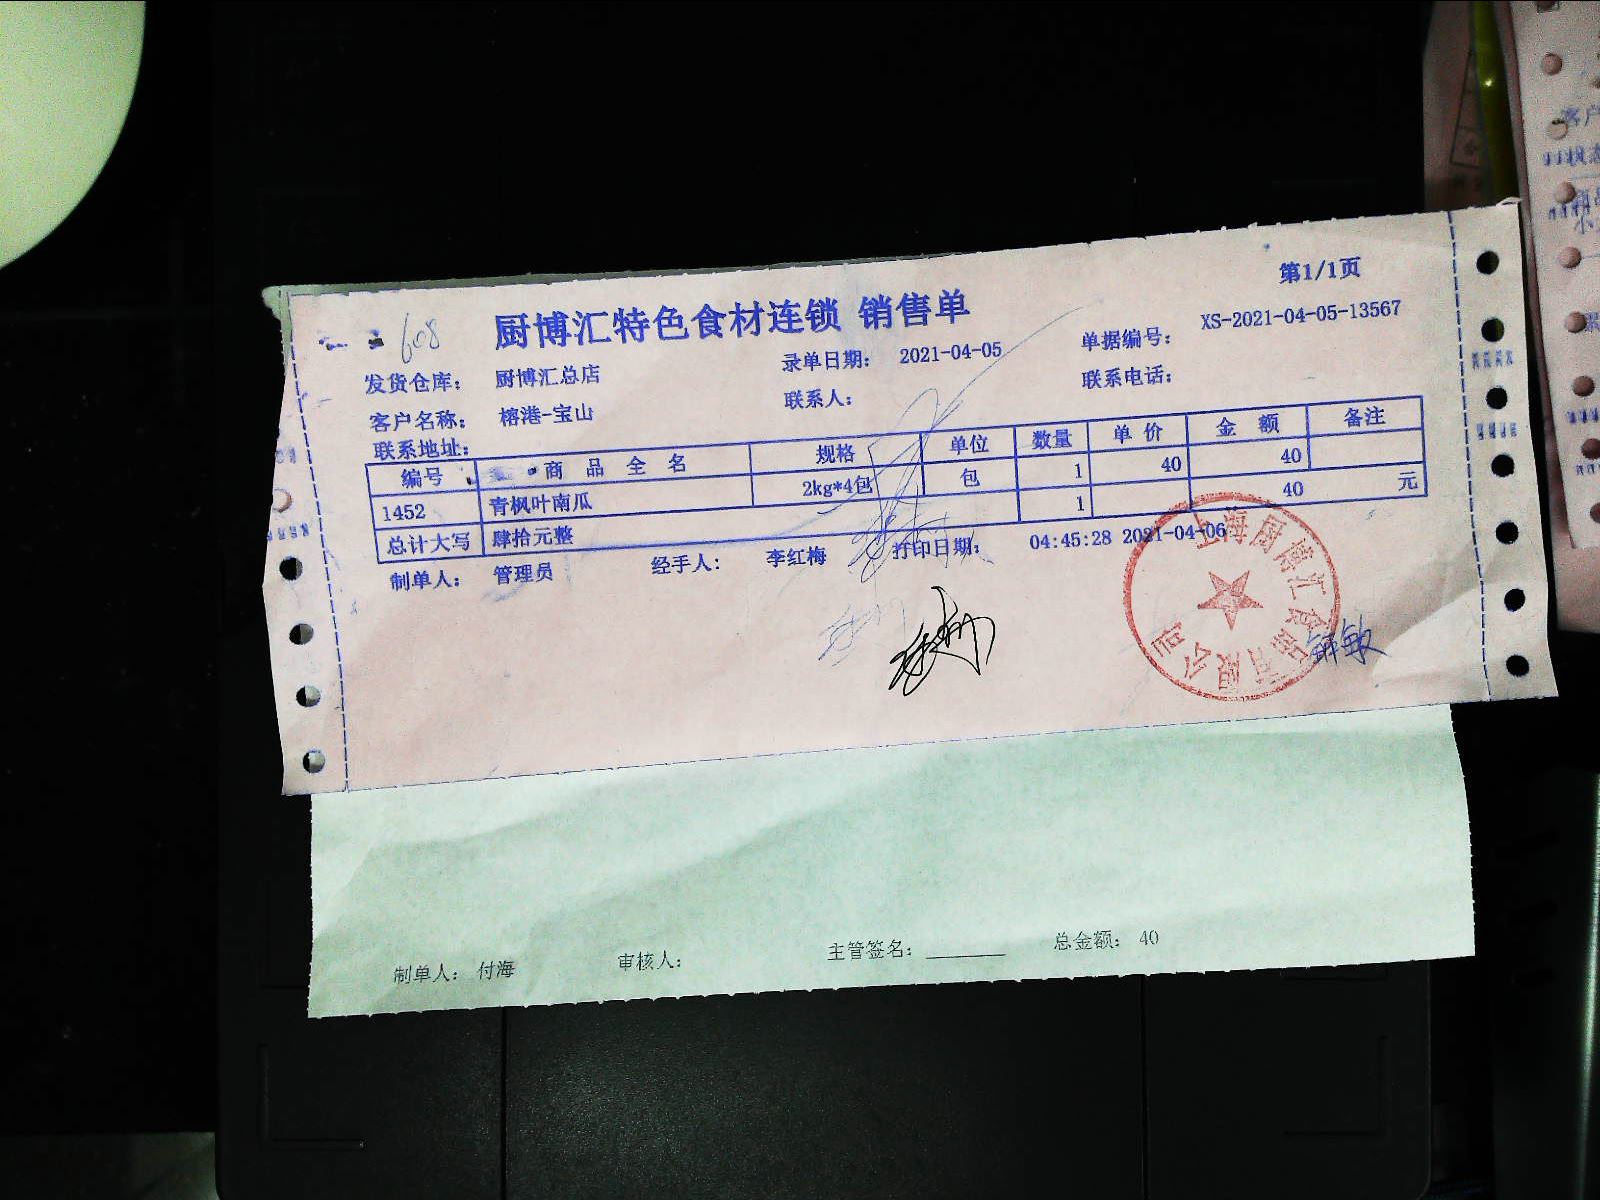 第1/1页
厨博汇特色食材连锁 销售单
608
发货仓库： 厨博汇总店 录单日期： 2021-04-05 单据编号： XS-2021-04-05-13567
客户名称： 榕港-宝山 联系人： 联系电话：
联系地址：
编号 商 品 全 名 规格 单位 数量 单 价 金 额 备注
1452 青枫叶南瓜 2kg*4包 包 1 40 40
总计大写 肆拾元整 1 40 元
制单人： 管理员 经手人： 李红梅 打印日期： 04:45:28 2021-04-06
上海厨博汇食品有限公司
制单人： 付海 审核人： 主管签名： ________ 总金额： 40
客户